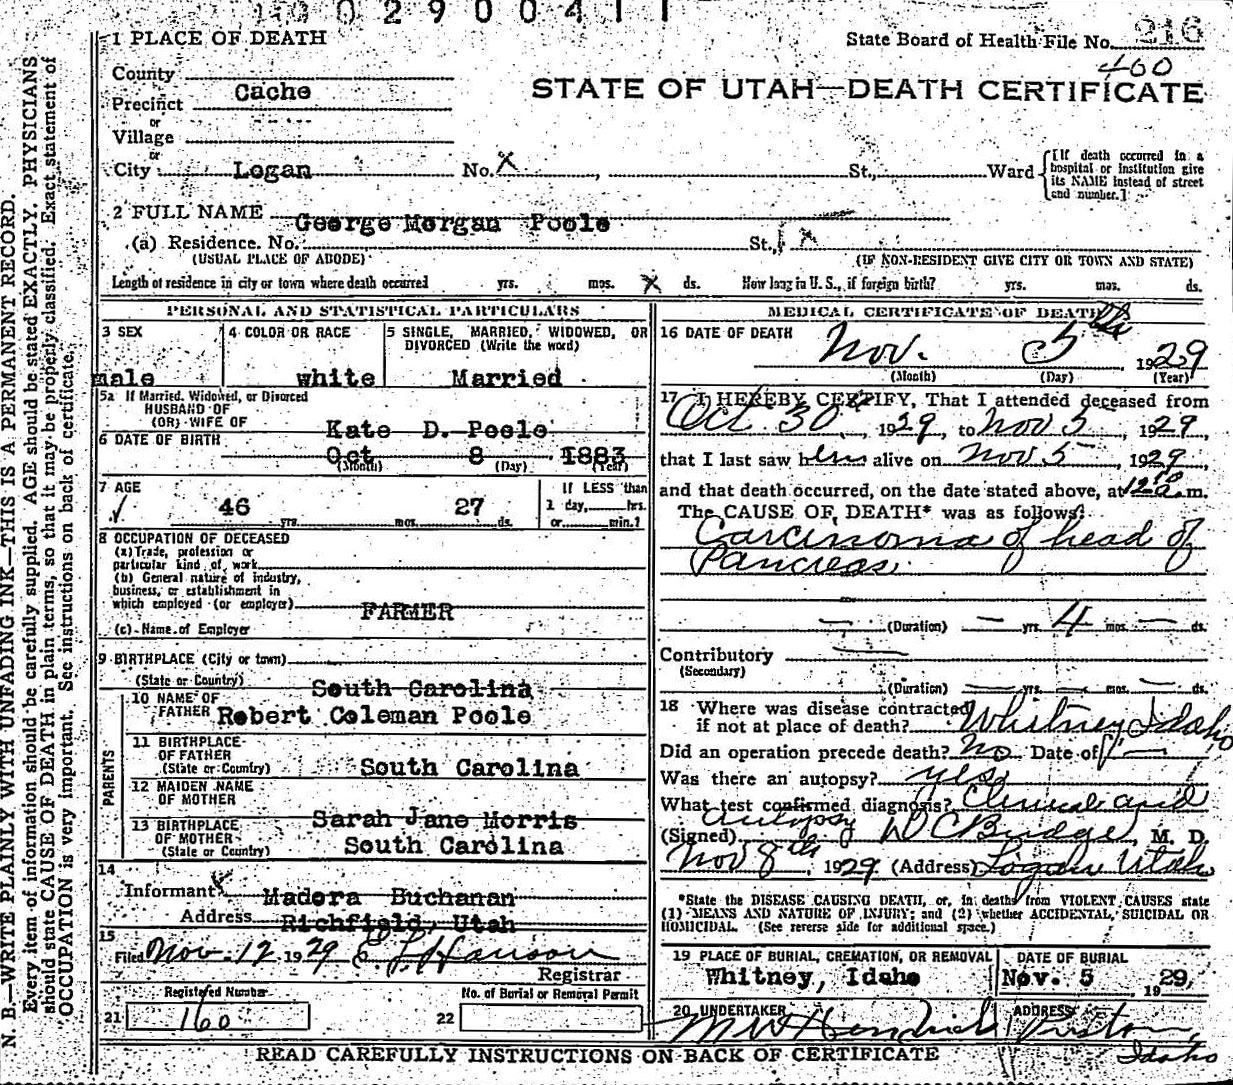 0 2 9 0 0 4 1 1
1 PLACE OF DEATH
State Board of Health File No. 216
400
STATE OF UTAH—DEATH CERTIFICATE
County
Cache
Precinct
or
Village
or
City Logan No. X , St., Ward
[If death occurred in a
hospital or institution give
its NAME instead of street
and number.]
2 FULL NAME George Morgan Poole
(a) Residence. No. St., X
(USUAL PLACE OF ABODE) (IF NON-RESIDENT GIVE CITY OR TOWN AND STATE)
Length of residence in city or town where death occurred yrs. mos. X ds. How long in U. S., if foreign birth? yrs. mos. ds.
PERSONAL AND STATISTICAL PARTICULARS
3 SEX
male
4 COLOR OR RACE
white
5 SINGLE, MARRIED, WIDOWED, OR
DIVORCED (Write the word)
Married
5a If Married, Widowed, or Divorced
HUSBAND OF
(OR) WIFE OF
Kate D. Poole
6 DATE OF BIRTH
Oct 8 1883
(Month) (Day) (Year)
7 AGE
46 yrs. mos. 27 ds.
If LESS than
1 day, hrs.
or min.?
8 OCCUPATION OF DECEASED
(a) Trade, profession or
particular kind of work
(b) General nature of industry,
business, or establishment in
which employed (or employer) FARMER
(c) Name of Employer
9 BIRTHPLACE (City or town)
(State or Country) South Carolina
PARENTS
10 NAME OF
FATHER Robert Coleman Poole
11 BIRTHPLACE
OF FATHER
(State or Country) South Carolina
12 MAIDEN NAME
OF MOTHER
Sarah Jane Morris
13 BIRTHPLACE
OF MOTHER
(State or Country) South Carolina
14
Informant Madora Buchanan
Address Richfield, Utah
15
Filed Nov. 12 1929 E. L. Hanson
Registrar
Registered Number
21 160
No. of Burial or Removal Permit
22
MEDICAL CERTIFICATE OF DEATH
16 DATE OF DEATH
Nov. 5th 1929
(Month) (Day) (Year)
17 I HEREBY CERTIFY, That I attended deceased from
Oct. 30, 1929, to Nov 5, 1929,
that I last saw him alive on Nov 5, 1929,
and that death occurred, on the date stated above, at 12 a.m.
The CAUSE OF DEATH* was as follows:
Carcinoma of head of
Pancreas.
(Duration) — yrs. 4 mos. — ds.
Contributory
(Secondary)
(Duration) yrs. mos. ds.
18 Where was disease contracted
if not at place of death? Whitney, Idaho
Did an operation precede death? no Date of
Was there an autopsy? yes
What test confirmed diagnosis? Clinical and
autopsy
(Signed) D C Budge, M. D.
Nov 8th, 1929 (Address) Logan Utah
*State the DISEASE CAUSING DEATH, or, in deaths from VIOLENT CAUSES state
(1) MEANS AND NATURE OF INJURY; and (2) whether ACCIDENTAL, SUICIDAL OR
HOMICIDAL. (See reverse side for additional space.)
19 PLACE OF BURIAL, CREMATION, OR REMOVAL
Whitney, Idaho
DATE OF BURIAL
Nov. 5, 1929,
20 UNDERTAKER
M W Hendricks
ADDRESS
Preston,
Idaho
READ CAREFULLY INSTRUCTIONS ON BACK OF CERTIFICATE
N. B.—WRITE PLAINLY WITH UNFADING INK—THIS IS A PERMANENT RECORD.
Every item of information should be carefully supplied. AGE should be stated EXACTLY. PHYSICIANS
should state CAUSE OF DEATH in plain terms, so that it may be properly classified. Exact statement of
OCCUPATION is very important. See instructions on back of certificate.